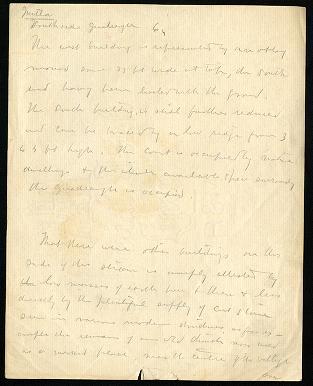 Muttra
Southside Quadrangle 64
The west building is represented by another
mound some 25 ft wide at top, the South
end having been levelled with the ground.
The South building, is still further reduced
and can be traced by a low ridge from 3
to 4 ft high. The Court is occupied by native
dwellings & the whole available space around
the Quadrangle is occupied.
That there were other buildings on this
side of the stream is amply attested by
the low masses of earth here & there & less
directly by the plentiful supply of cut stone
seen in various modern structures as for ex-
ample the remains of an old now used
as a burial place, near the centre of the village